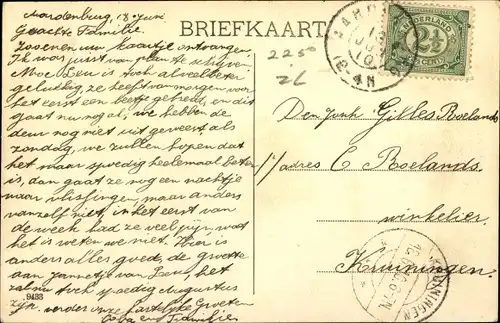 Aardenburg, 18 Juni
BRIEFKAART
Geachte Familie.
Zooeven uw kaartje ontvangen,
Ik was juist van plan te schrijven
Moe Leu is toch alweel beter
gelukkig ze heeft van morgen voor
het eerst een beetje gebeten, en dit
gaat nu nog al, we hebben de
deur nog niet uit geweest als
zondag, we zullen hopen dat
het maar spoedig heelemaal beter
is, dan gaat ze nog een nachtje
naar Vlissingen, maar anders
vanzelf niet, in het eerst van
de week had ze veel pijn, wat
het is weten we niet. Hier is
anders alles goed, de groete
aan Jannetje van Leu, het
zal nu toch spoedig Augustus
zijn. verder onze hartelijke Groeten
Familie
9433
2250
NEDERLAND
2½
CENT
Den Jonk Gilles Roelands
p/adres C Roelands.
winkelier
Kruiningen.
KRUININGEN